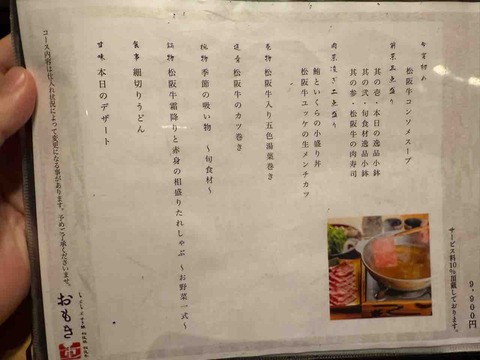 9,900円
サービス料10%頂戴しております。
松阪牛コンソメスープ
前菜三点盛り
其の壱・本日の逸品小鉢
其の弐・旬食材逸品小鉢
其の参・松阪牛の肉寿司
二点盛り
鮪といくらの小盛り丼
松阪牛ユッケの生メンチカツ
巻物 松阪牛入り五色湯葉巻き
松阪牛のカツ巻き
椀物 季節の吸い物 〜旬食材〜
鍋物 松阪牛霜降りと赤身の相盛りたれしゃぶ 〜お野菜一式〜
食事 細切りうどん
甘味 本日のデザート
コース内容は仕入れ状況によって変更になる事があります。予めご了承くださいませ。
おもき